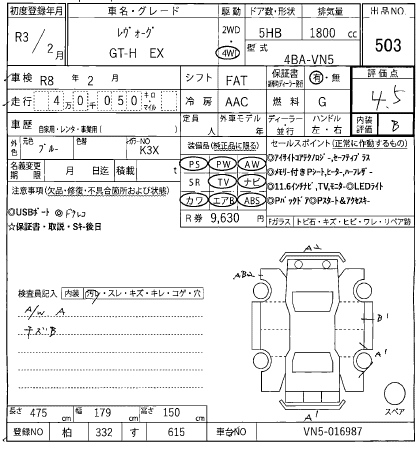 初度登録年月 車名・グレード 駆動 ドア数・形状 排気量 出品NO
R3/2月 レヴォーグ GT-H EX 2WD・4W 5HB 1800cc 503
型式 4BA-VN5
車検 R8年2月 シフト FAT 保証書 有・無 評価点
走行 4万0050キロ・マイル 冷房 AAC 燃料 G 4.5
車歴 自家用・レンタ・事業用( ) 定員 人 外車モデル 年 ディーラー・並行 ハンドル 左・右 内装評価 B
外色 元色 ブルー 色替 カラーNO K3X 装備品(純正品に限る) セールスポイント(正常に作動するもの)
名義変更期限 月 日迄 積載 t PS PW AW ◎アイサイトXテクノロジー,セーフティプラス
注意事項(欠品・修復・不具合箇所および状態) SR TV ナビ ◎メモリー付きPシート,ヒーター,ハーフレザー
◎USBポート ◎ドラレコ カワ エアB ABS ◎11.6インチナビ,TV,モニター◎LEDライト
☆保証書・取説・Sキー後日 R券 9,630円 ◎Pバックドア◎Pスタート&アクセスキー
Fガラス トビ石・キズ・ヒビ・ワレ・リペア跡
検査員記入 内装 汚レ・スレ・キズ・キレ・コゲ・穴
A/W A
キズB
A2
AB2
B1
A1
A1
スペア
長さ 475cm 幅 179cm 高さ 150cm
登録NO 柏 332 す 615 車台NO VN5-016987